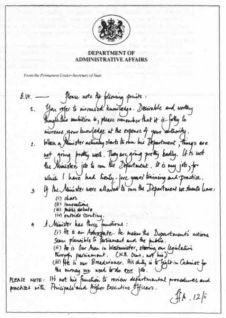 DEPARTMENT OF
ADMINISTRATIVE AFFAIRS
From the Permanent Under-Secretary of State
B.W. — Please note the following points:
1. You refer to increased knowledge. Desirable and worthy
though this ambition is, please remember that it is folly to
increase your knowledge at the expense of your authority.
2. When a Minister actually starts to run his Department, things are
not going pretty well. They are going pretty badly. It is not
the Minister's job to run his Department. It is my job, for
which I have had twenty-five years' training and practice.
3 If the Minister were allowed to run the Department we should have:
(i) chaos
(ii) innovations
(iii) public debate
(iv) outside scrutiny.
4 A Minister has three functions:
(i) He is an Advocate. He makes the Department's actions
seem plausible to Parliament and the public.
(ii) He is our Man in Westminster, steering our legislation
through parliament. (N.B. Ours, not his)
(iii) He is our Breadwinner. His duty is to fight in Cabinet for
the money we need to do our job.
PLEASE NOTE: It's not his function to review departmental procedures and
practices with Principals and Higher Executive Officers.
HA. 12/ii